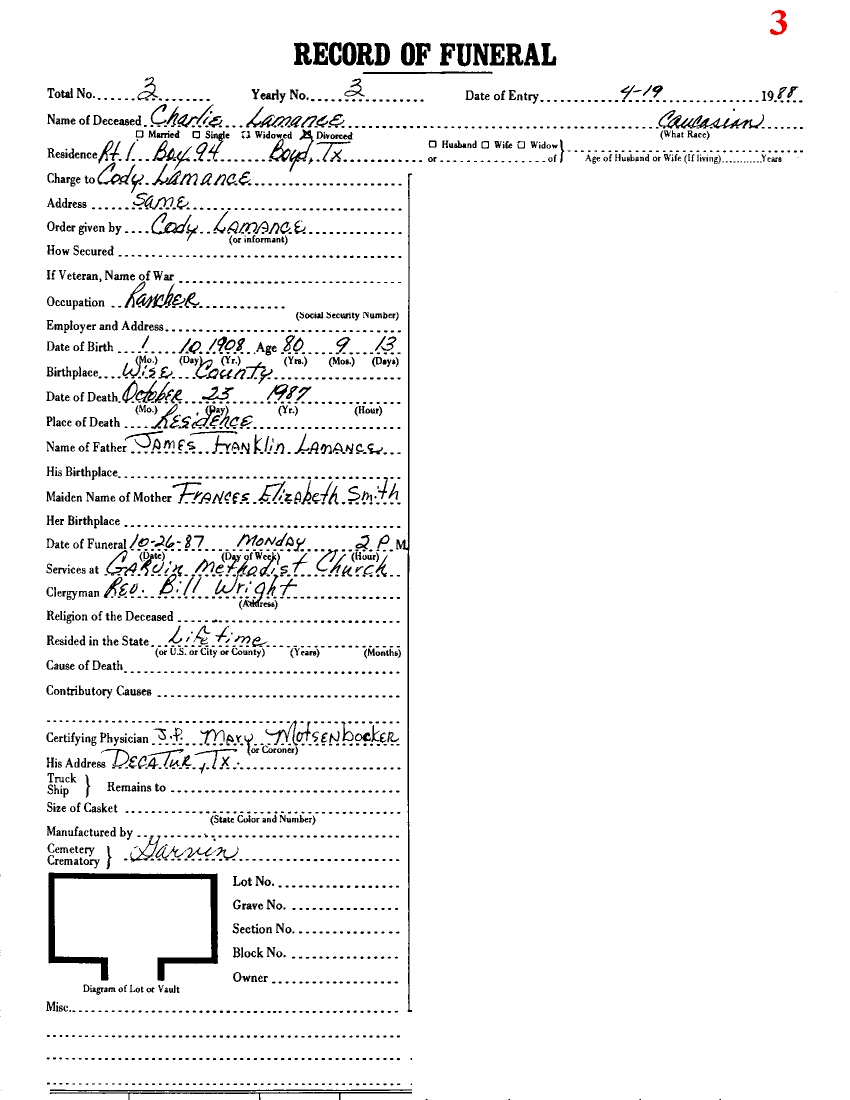 3
RECORD OF FUNERAL
Total No. 3 Yearly No. 3 Date of Entry 4-19 1988
Name of Deceased Charlie Lamance Caucasian
☐ Married ☐ Single ☐ Widowed ☒ Divorced (What Race)
Residence Rt 1 Box 94 Boyd, Tx ☐ Husband ☐ Wife ☐ Widow
or of Age of Husband or Wife (If living) Years
Charge to Cody Lamance
Address Same
Order given by Cody Lamance
(or informant)
How Secured
If Veteran, Name of War
Occupation Rancher
(Social Security Number)
Employer and Address
Date of Birth 1 10 1908 Age 80 9 13
(Mo.) (Day) (Yr.) (Yrs.) (Mos.) (Days)
Birthplace Wise County
Date of Death October 23 1987
(Mo.) (Day) (Yr.) (Hour)
Place of Death Residence
Name of Father James Franklin Lamance
His Birthplace
Maiden Name of Mother Frances Elizabeth Smith
Her Birthplace
Date of Funeral 10-26-87 Monday 2 P. M.
(Date) (Day of Week) (Hour)
Services at Garvin Methodist Church
Clergyman Rev. Bill Wright
(Address)
Religion of the Deceased
Resided in the State Life time
(or U.S. or City or County) (Years) (Months)
Cause of Death
Contributory Causes
Certifying Physician J.P. Mary Motsenbocker
(or Coroner)
His Address Decatur, Tx.
Truck
Ship } Remains to
Size of Casket
(State Color and Number)
Manufactured by
Cemetery
Crematory } Garvin
Lot No.
Grave No.
Section No.
Block No.
Owner
Diagram of Lot or Vault
Misc.